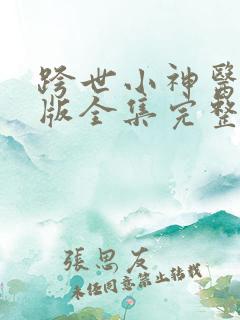 跨世小神醫
版全集完整
張思友
未經同意禁止轉載